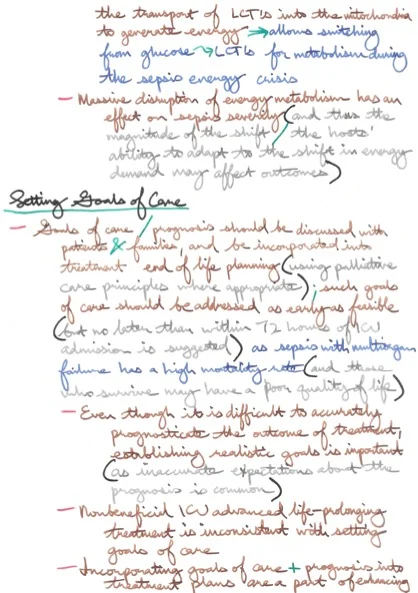 the transport of LCT's into the mitochondria
to generate energy → allows switching
from glucose → LCT's for metabolism during
the sepsis energy crisis
— Massive disruption of energy metabolism has an
effect on sepsis severity (and thus the
magnitude of the shift / the hosts'
ability to adapt to the shift in energy
demand may affect outcomes)
Setting Goals of Care
— Goals of care / prognosis should be discussed with
patients & families, and be incorporated into
treatment end of life planning (using palliative
care principles where appropriate); such goals
of care should be addressed as early as feasible
(but no later than within 72 hours of ICU
admission is suggested) as sepsis with multiorgan
failure has a high mortality rate (and those
who survive may have a poor quality of life)
— Even though it is difficult to accurately
prognosticate the outcome of treatment,
establishing realistic goals is important
(as inaccurate expectations about the
prognosis is common)
— Nonbeneficial ICU advanced life-prolonging
treatment is inconsistent with setting
goals of care
— Incorporating goals of care + prognosis into
treatment plans are a part of enhancing